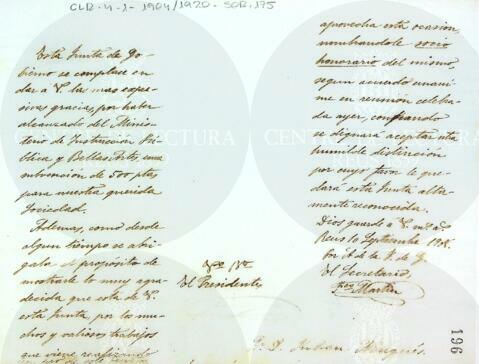 CLR-4-1-1904/1920-SOR.175
Esta Junta de Go-
bierno se complace en
dar a V. las mas expre-
sivas gracias, por haber
alcanzado del Minis-
terio de Instrucción Pú-
blica y Bellas Artes, una
subvención de 500 ptas
para nuestra querida
Sociedad.
Ademas, como desde
algun tiempo se abri-
gaba el propósito de
mostrarle lo muy agra-
decida que está de V.
esta Junta, por los mu-
chos y valiosos trabajos
que viene realizando
Vº Bº
El Presidente
aprovecha esta ocasión,
nombrandole socio
honorario del mismo,
segun acuerdo unani-
me en reunión celebra-
da ayer, confiando
se dignará aceptar esta
humilde distinción
por cuyo favor le que-
dará esta Junta alta-
mente reconocida.
Dios guarde a V. m.s años
Reus 10 Septiembre
Por A. de la J. de G.
El Secretario
Martin
S. D. Julian
196
CENTRE DE LECTURA
REUS